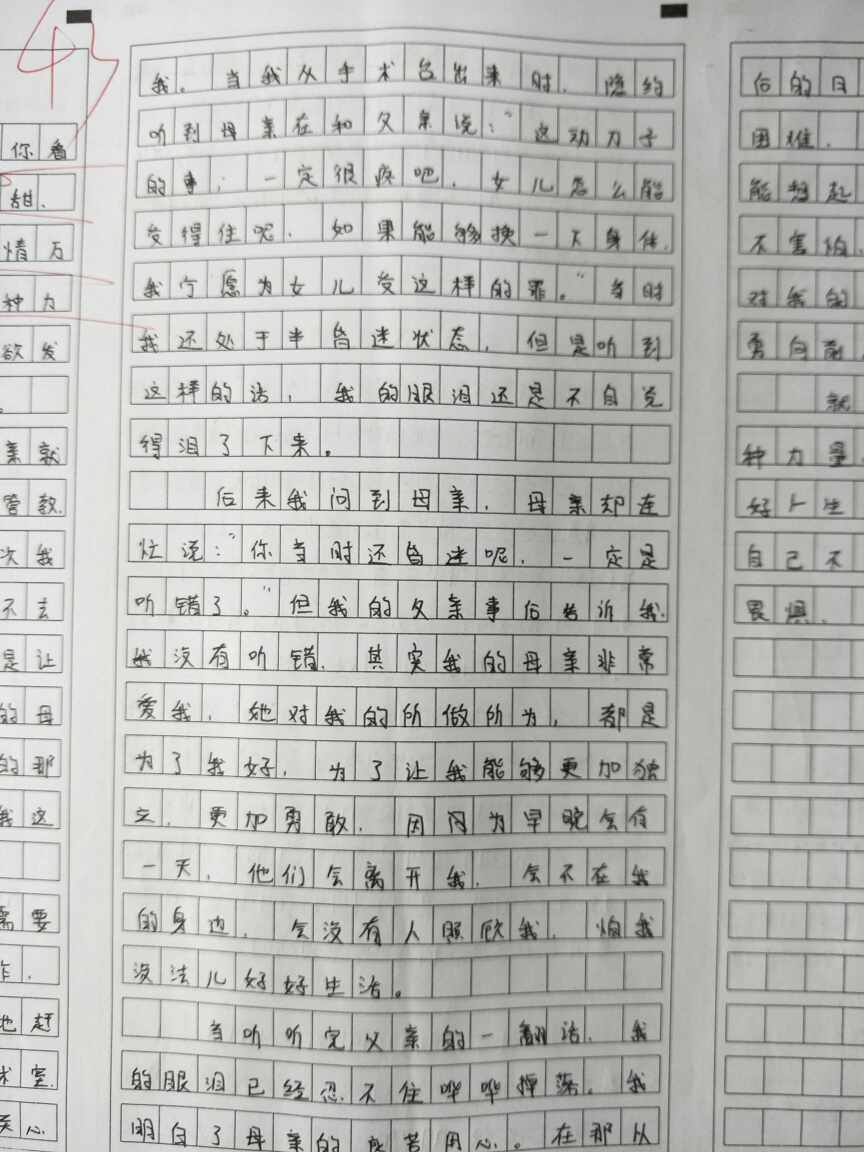 43
你看
甜、
情万
种力
欲发
亲就
管教.
次我
不去
是让
的母
的那
我这
需要
作.
地赶
术室.
关心.
我。当我从手术台出来时，隐约
听到母亲在和父亲说：“这动刀子
的事，一定很疼吧，女儿怎么能
受得住呢，如果能够换一下身体，
我宁愿为女儿受这样的罪。”当时
我还处于半昏迷状态，但是听到
这样的话，我的眼泪还是不自觉
得泪了下来。
后来我问到母亲，母亲却连
忙说：“你当时还昏迷呢，一定是
听错了。”但我的父亲事后告诉我.
我没有听错，其实我的母亲非常
爱我，她对我的所做所为，都是
为了我好，为了让我能够更加独
立，更加勇敢，因为早晚会有
一天，他们会离开我，会不在我
的身边，会没有人照顾我，怕我
没法儿好好生活。
当听听完父亲的一翻话，我
的眼泪已经忍不住哗哗掉落。我
明白了母亲的良苦用心。在那从
后的日
困难，
能想起
不害怕，
对我的
勇向前，
就
种力量
好人生
自己不
畏惧.